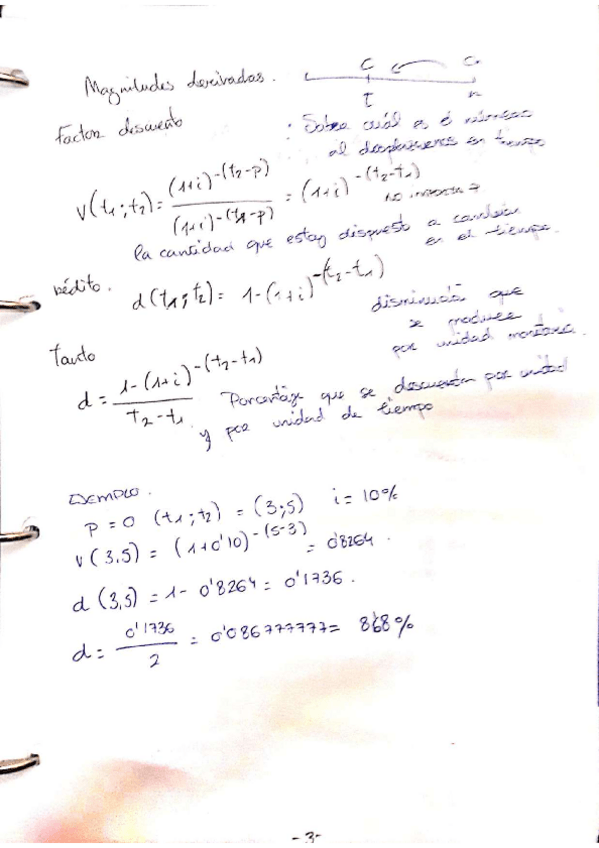 Magnitudes derivadas.
C Cn
t n
Factor descuento : Sobre cuál es el número
al desplazarnos en tiempo
v(t₁;t₂) = (1+i)^-(t₂-p) / (1+i)^-(t₁-p) = (1+i)^-(t₂-t₁)
no importa
la cantidad que estoy dispuesto a cambiar
en el tiempo.
rédito. d(t₁;t₂) = 1-(1+i)^-(t₂-t₁)
disminución que
se produce
por unidad monetaria.
Tanto
d = 1-(1+i)^-(t₂-t₁) / t₂-t₁
Porcentaje que se descuenta por unidad
y por unidad de tiempo
EJEMPLO.
P=0 (t₁;t₂) = (3;5) i=10%
v(3,5) = (1+0'10)^-(5-3) = 0'8264.
d(3,5) = 1-0'8264 = 0'1736.
d = 0'1736 / 2 = 0'086777777 = 8'68%
-3-